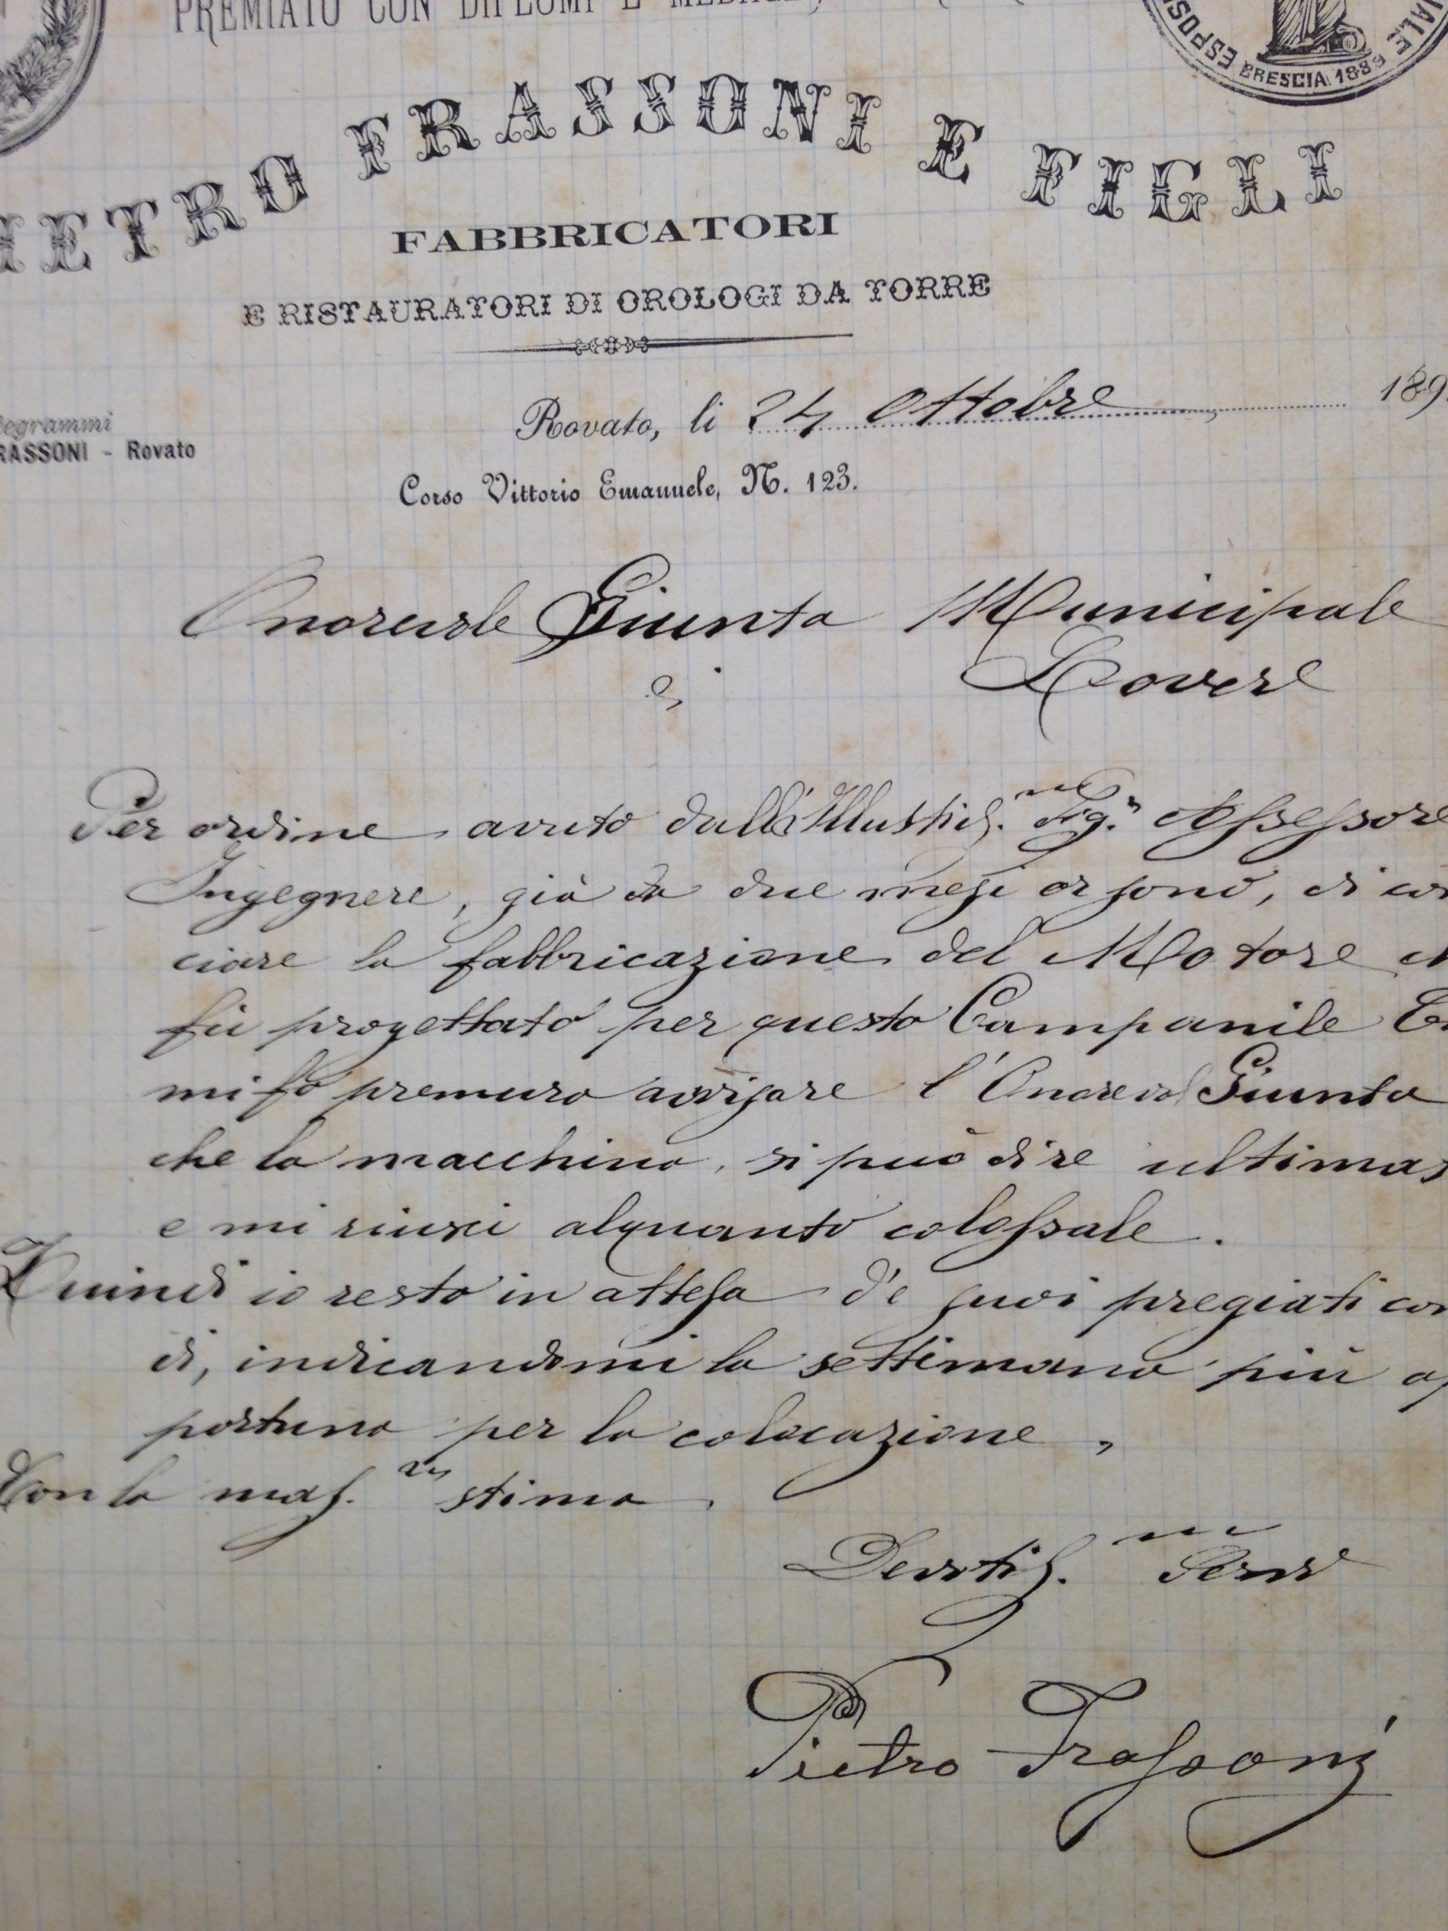 PREMIATO CON DIPLOMI E
ESPOS
IALE
BRESCIA 1889
PIETRO FRASSONI E FIGLI
FABBRICATORI
E RISTAURATORI DI OROLOGI DA TORRE
Rovato, li 24 Ottobre 189
legrammi
RASSONI - Rovato
Corso Vittorio Emanuele, N. 123.
Onorevole Giunta Municipale
di Lovere
Per ordine avuto dall'Illustris.mo Sig.r Assessore
Ingegnere, già da due mesi or sono, di co
ciare la fabbricazione del Motore
fù progettato per questo Campanile
mi fò premura avvisare l'Onorevol Giunta
che la macchina, si può dire ultimat
e mi riuscì alquanto colossale.
Quindi io resto in attesa de' suoi pregiati co
di, indicandomi la settimana più op
portuna per la colocazione,
Con la mas.ma stima,
Devotis.mo Servo
Pietro Frassoni